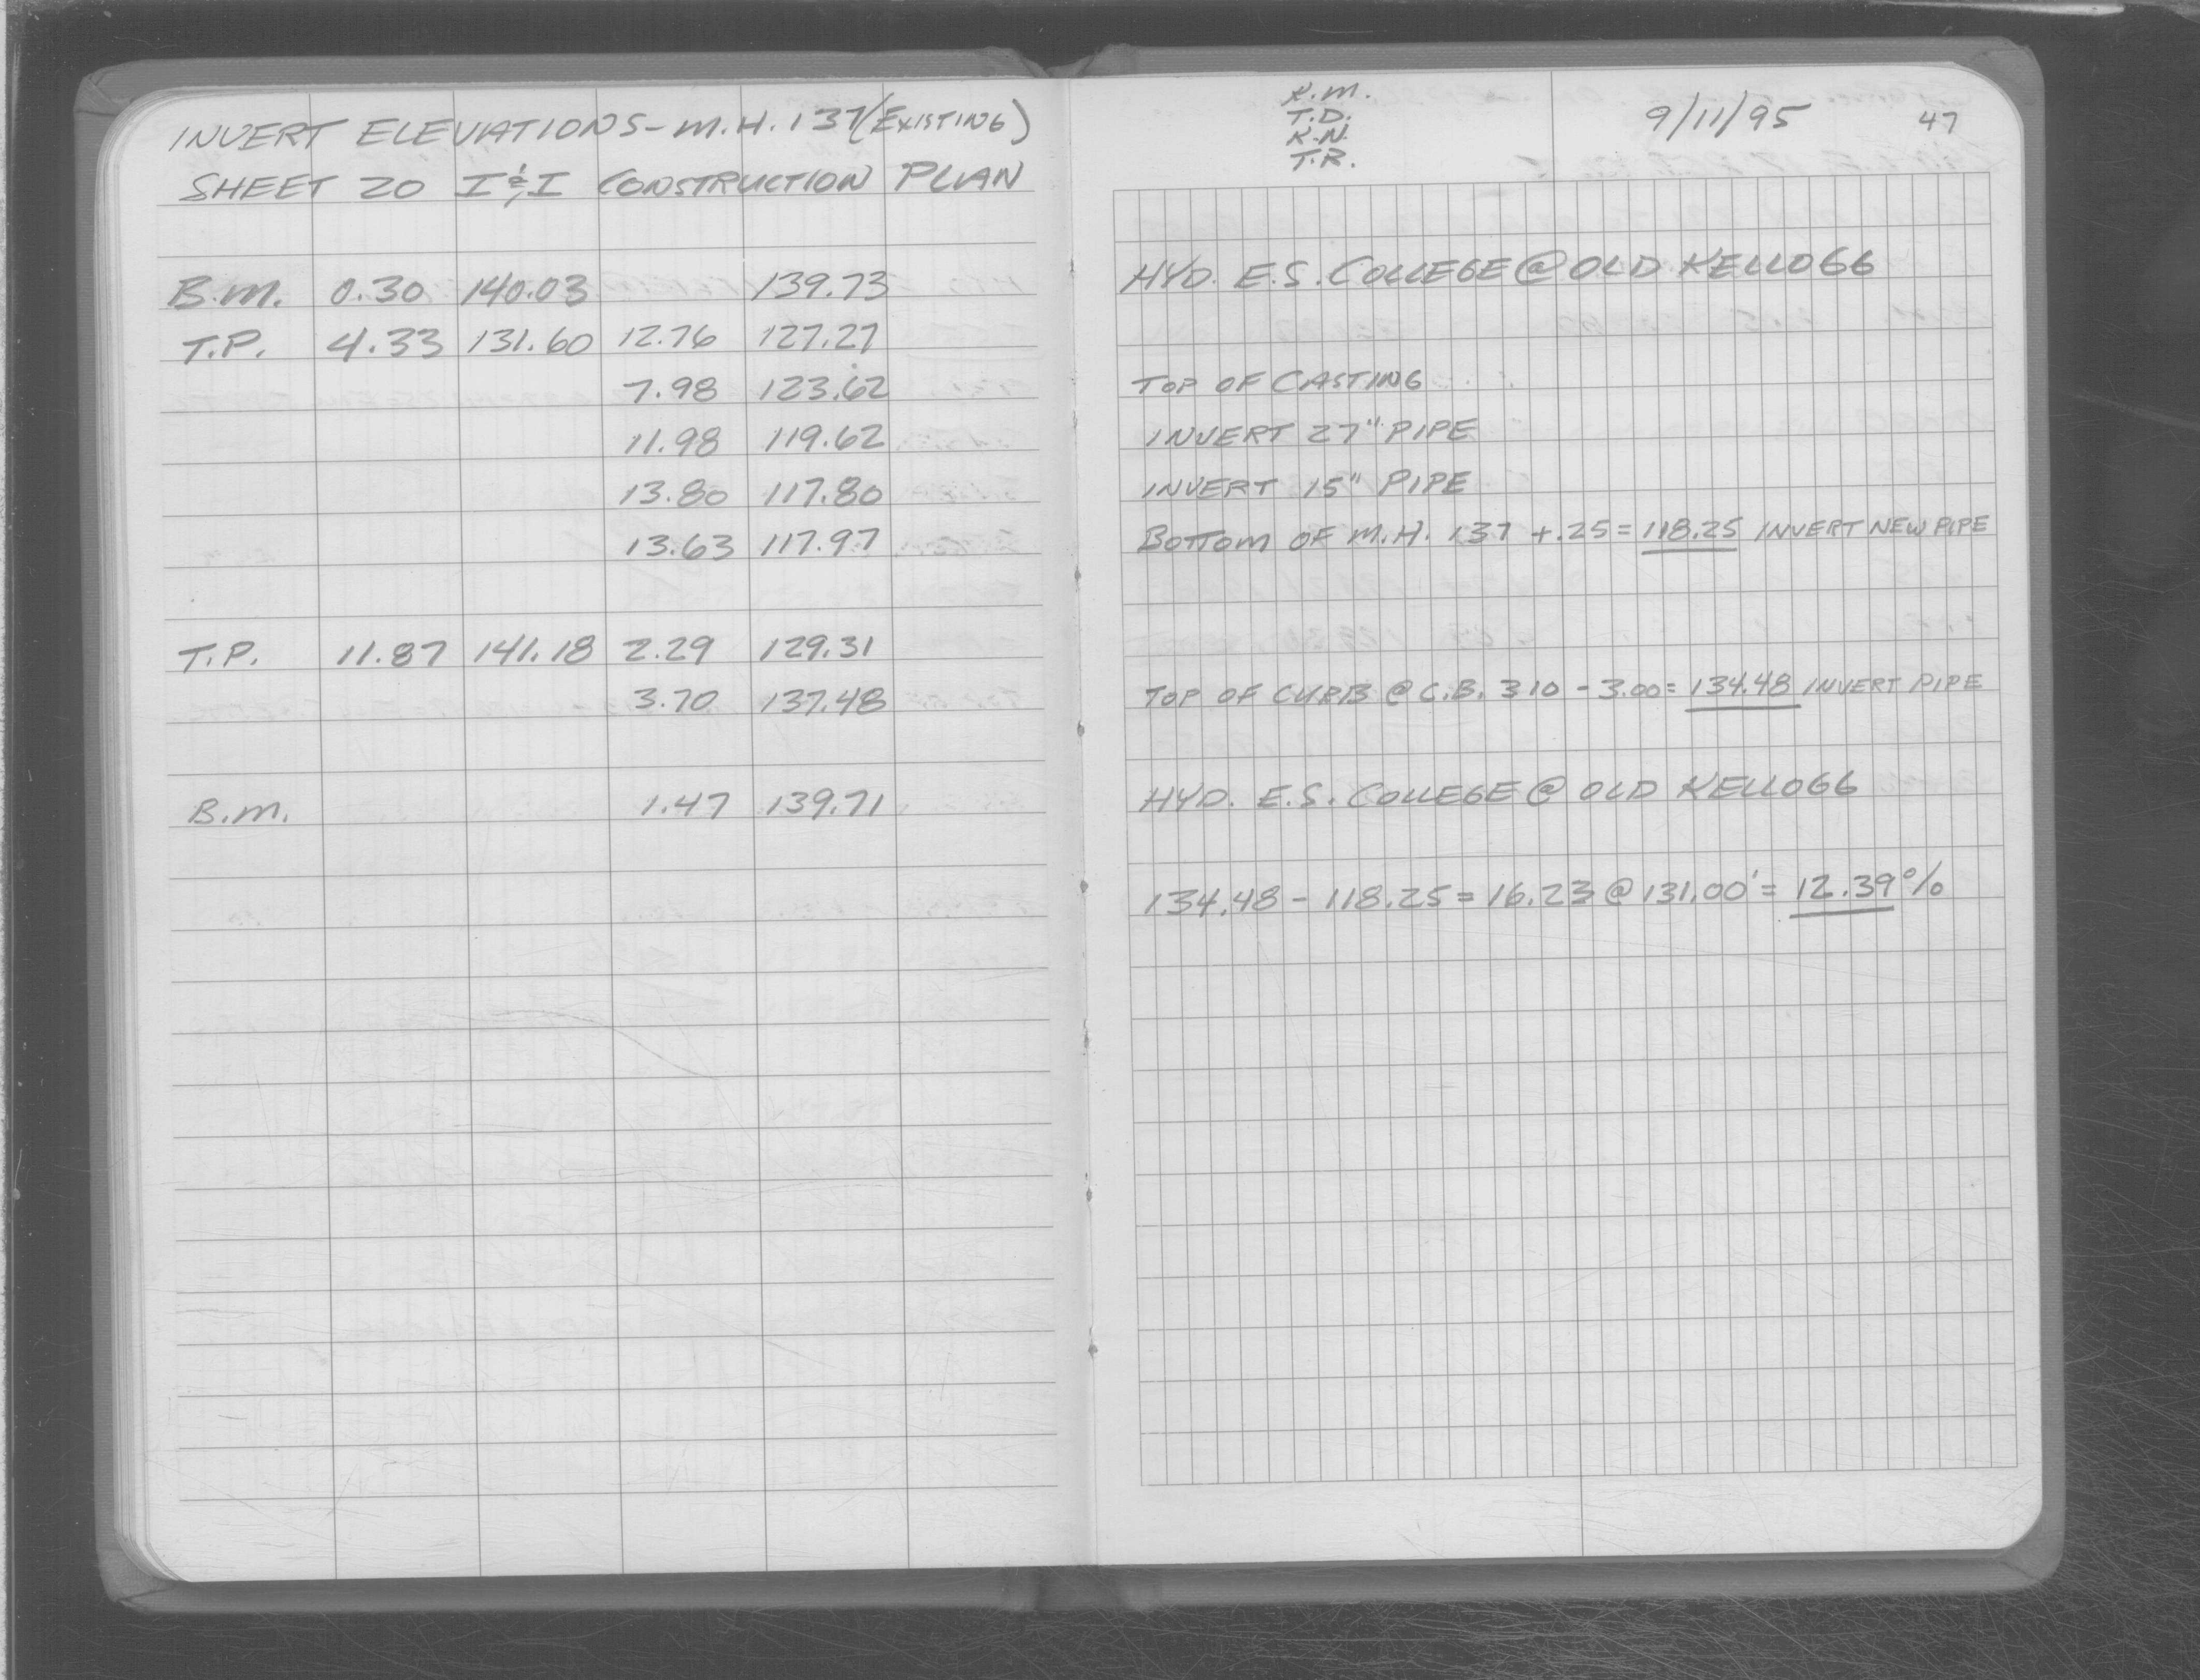 INVERT ELEVATIONS - M.H. 137 (EXISTING)
SHEET 20 I & I CONSTRUCTION PLAN
B.M. 0.30 140.03 139.73
T.P. 4.33 131.60 12.76 127.27
7.98 123.62
11.98 119.62
13.80 117.80
13.63 117.97
T.P. 11.87 141.18 2.29 129.31
3.70 137.48
B.M. 1.47 139.71
K.M.
T.D.
K.N.
T.R.
9/11/95 47
HYD. E.S. COLLEGE @ OLD KELLOGG
TOP OF CASTING
INVERT 27" PIPE
INVERT 15" PIPE
BOTTOM OF M.H. 137 +.25 = 118.25 INVERT NEW PIPE
TOP OF CURB @ C.B. 310 - 3.00 = 134.48 INVERT PIPE
HYD. E.S. COLLEGE @ OLD KELLOGG
134.48 - 118.25 = 16.23 @ 131.00' = 12.39%